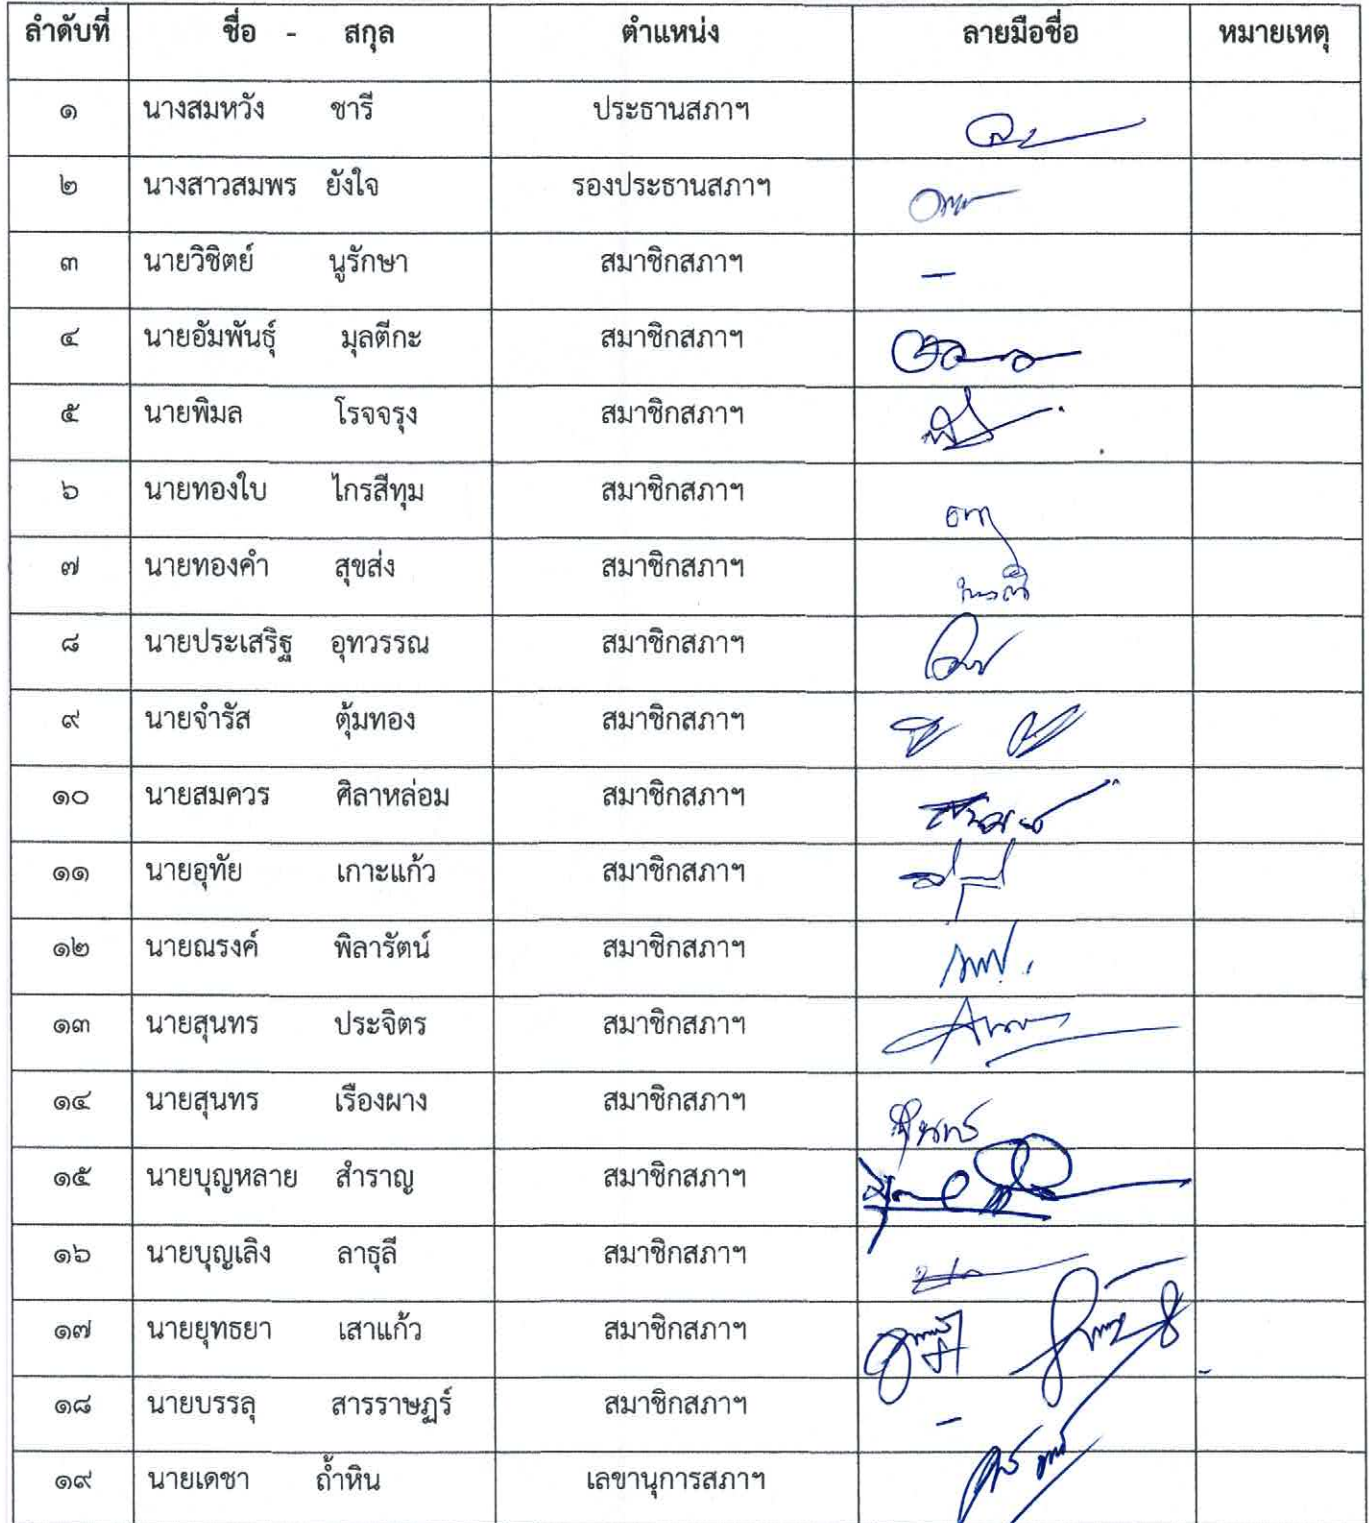 ลำดับที่ ชื่อ - สกุล ตำแหน่ง ลายมือชื่อ หมายเหตุ
๑ นางสมหวัง ชารี ประธานสภาฯ
๒ นางสาวสมพร ยังใจ รองประธานสภาฯ
๓ นายวิชิตย์ นูรักษา สมาชิกสภาฯ –
๔ นายอัมพันธุ์ มุลตีกะ สมาชิกสภาฯ
๕ นายพิมล โรจจรุง สมาชิกสภาฯ
๖ นายทองใบ ไกรสีทุม สมาชิกสภาฯ
๗ นายทองคำ สุขส่ง สมาชิกสภาฯ
๘ นายประเสริฐ อุทวรรณ สมาชิกสภาฯ
๙ นายจำรัส ตุ้มทอง สมาชิกสภาฯ
๑๐ นายสมควร ศิลาหล่อม สมาชิกสภาฯ
๑๑ นายอุทัย เกาะแก้ว สมาชิกสภาฯ
๑๒ นายณรงค์ พิลารัตน์ สมาชิกสภาฯ
๑๓ นายสุนทร ประจิตร สมาชิกสภาฯ
๑๔ นายสุนทร เรืองผาง สมาชิกสภาฯ
๑๕ นายบุญหลาย สำราญ สมาชิกสภาฯ
๑๖ นายบุญเลิง ลาธุลี สมาชิกสภาฯ
๑๗ นายยุทธยา เสาแก้ว สมาชิกสภาฯ
๑๘ นายบรรลุ สารราษฎร์ สมาชิกสภาฯ –
๑๙ นายเดชา ถ้ำหิน เลขานุการสภาฯ